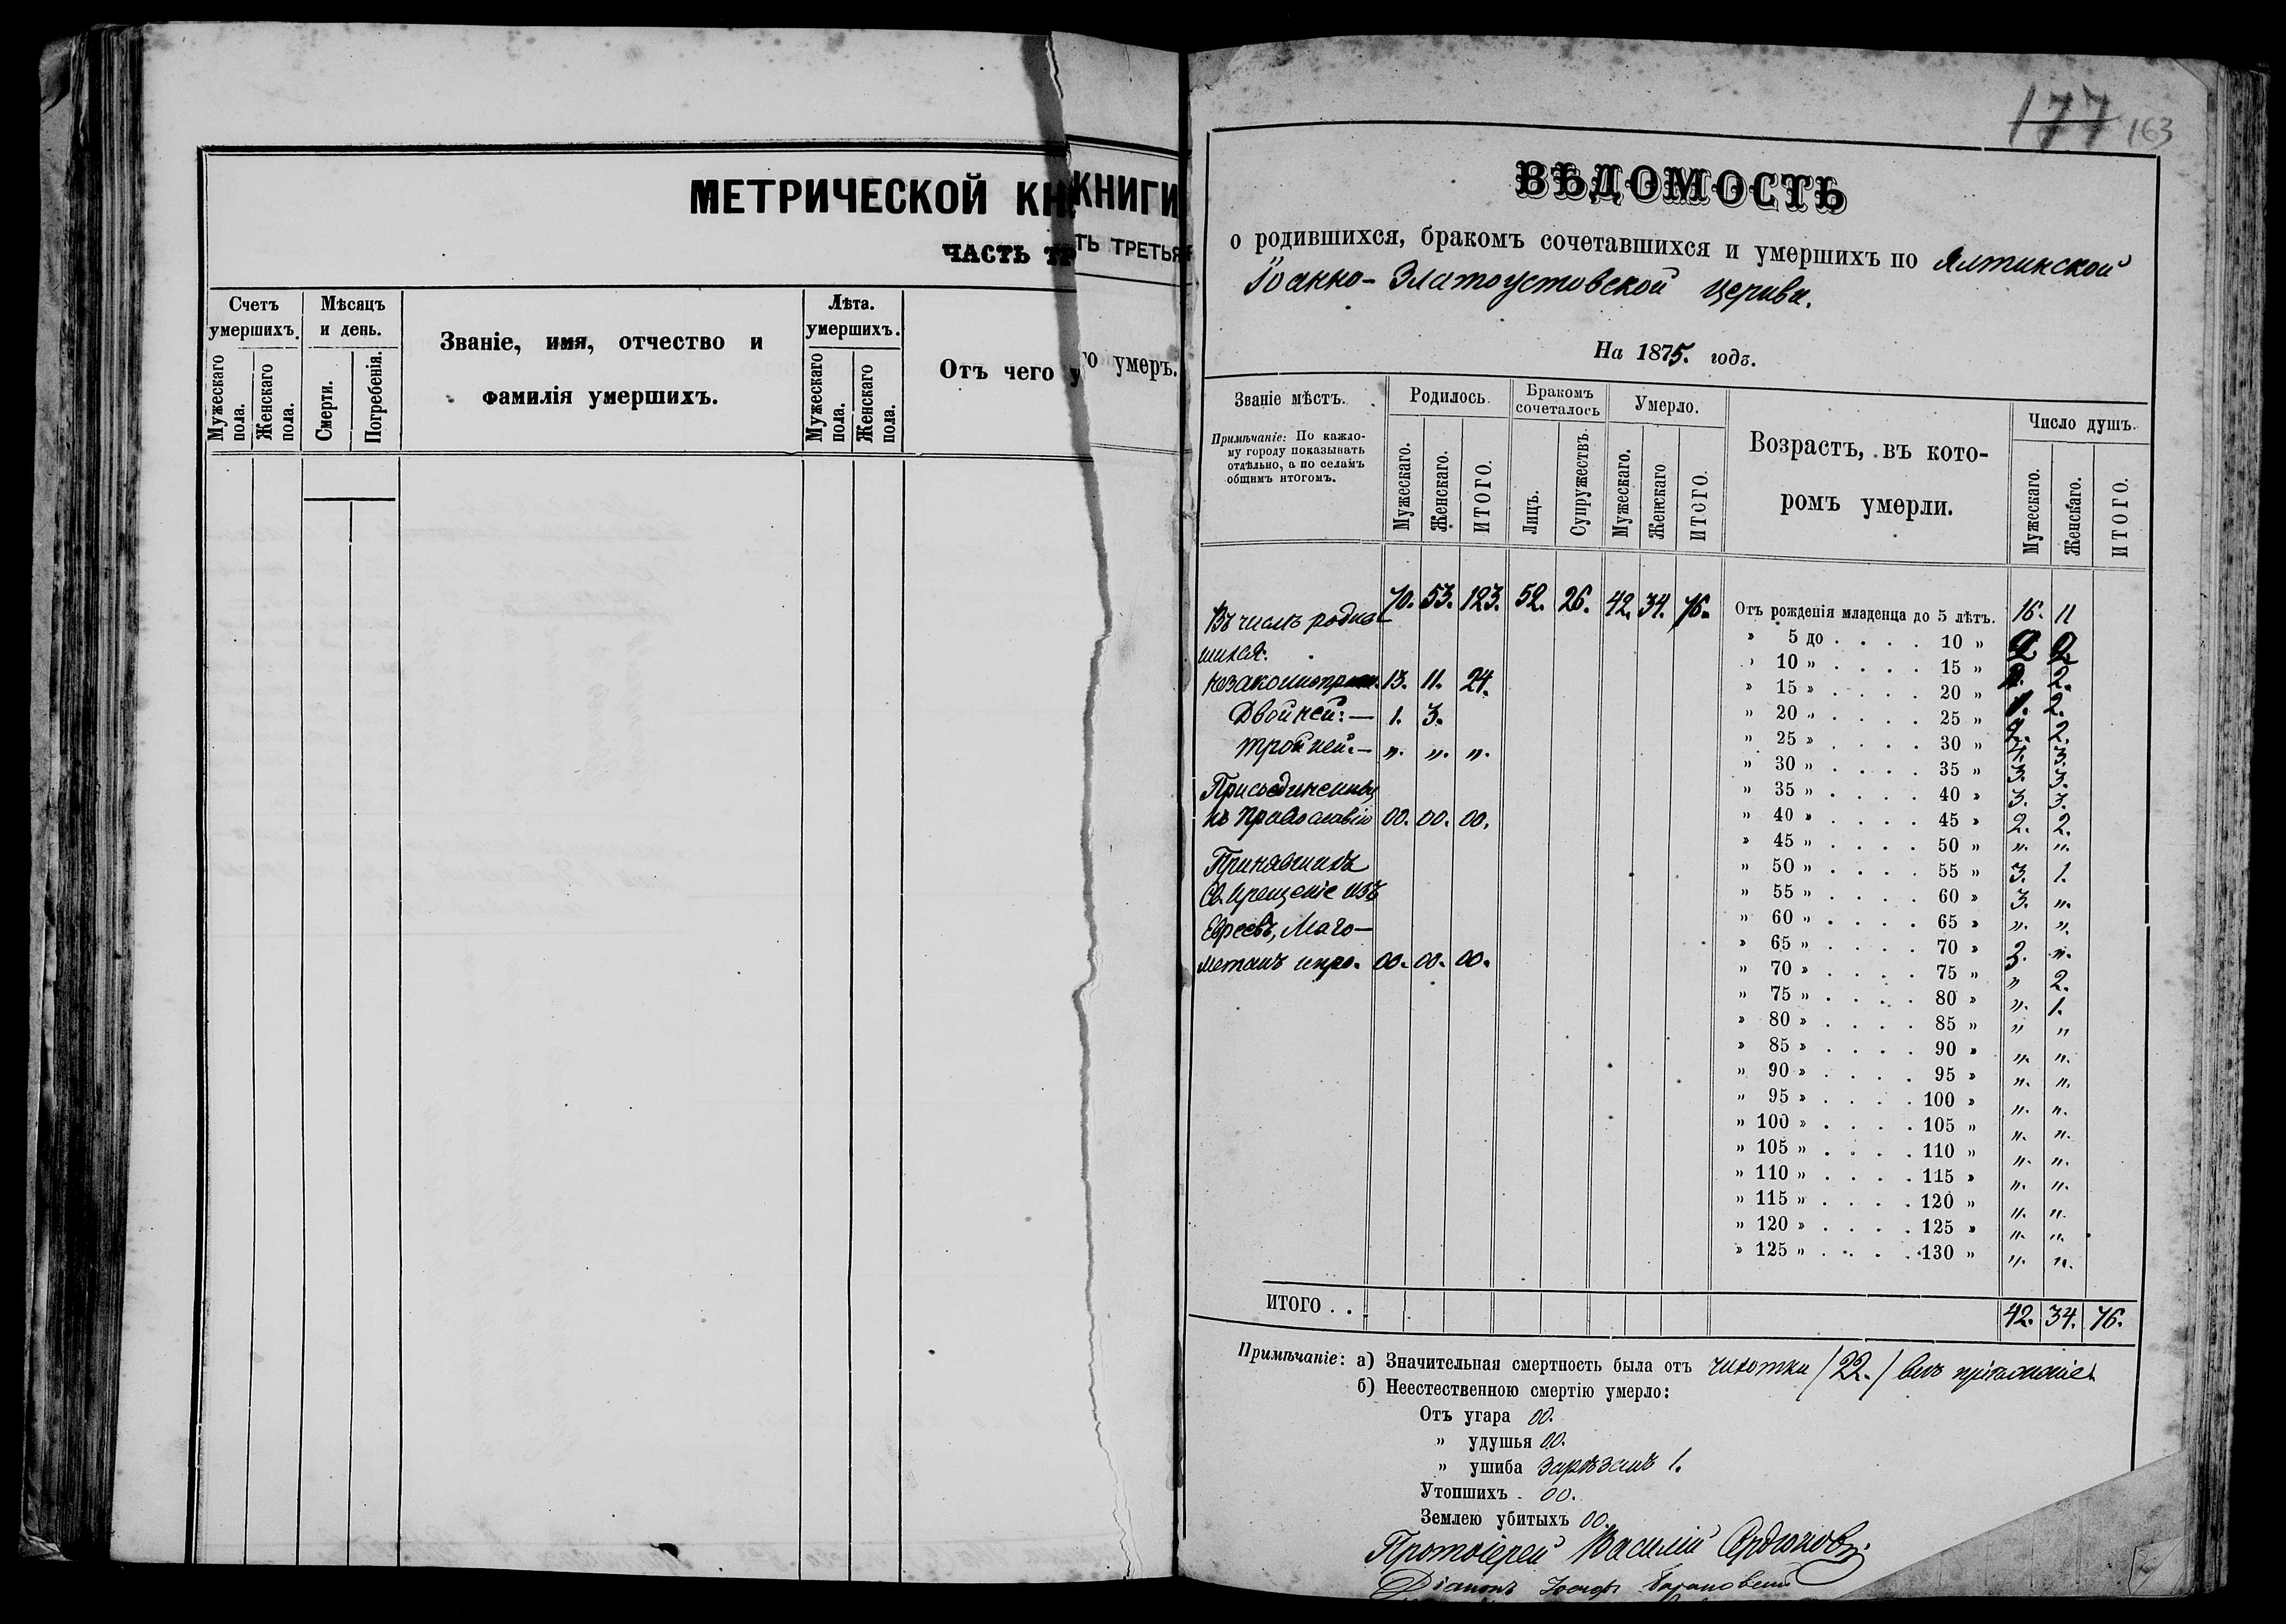 МЕТРИЧЕСКОЙ КН
КНИГИ
ЧАСТЬ ТР
ТЬ ТРЕТЬЯ
Счетъ умершихъ.
Мужескаго пола.
Женскаго пола.
Мѣсяцъ и день.
Смерти.
Погребенія.
Званіе, имя, отчество и
фамилія умершихъ.
Лѣта. умершихъ.
Мужескаго пола.
Женскаго пола.
Отъ чего у
го умеръ.
177 163
ВѢДОМОСТЬ
о родившихся, бракомъ сочетавшихся и умершихъ по Ялтинской
Іоанно-Златоустовской церкви.
На 1875. годъ.
Званіе мѣстъ.
Примѣчаніе: По каждо-
му городу показывать
отдѣльно, а по селамъ
общимъ итогомъ.
Родилось.
Мужескаго. Женскаго. ИТОГО.
Бракомъ сочеталось
Лицъ. Супружествъ.
Умерло.
Мужескаго. Женскаго ИТОГО.
Возрастъ, въ кото-
ромъ умерли.
Число душъ.
Мужескаго. Женскаго. ИТОГО.
70. 53. 123. 52. 26. 42. 34. 76.
Въ числѣ родив-
шихся:
незаконнорож. 13. 11. 24.
Двойней: — 1. 3.
тройней: — „. „. „.
Присоединенных
къ Православію 00. 00. 00.
Принявшихъ
Св. Крещеніе изъ
Евреевъ, Маго-
метанъ и про. 00. 00. 00.
Отъ рожденія младенца до 5 лѣтъ. 16. 11
» 5 до . . . . 10 » 2 2
» 10 » . . . . 15 » 2.
» 15 » . . . . 20 » 1. 2.
» 20 » . . . . 25 » 2.
» 25 » . . . . 30 » 4. 3.
» 30 » . . . . 35 » 3. 3.
» 35 » . . . . 40 » 3. 3.
» 40 » . . . . 45 » 2. 2.
» 45 » . . . . 50 » „. „.
» 50 » . . . . 55 » 3. 1.
» 55 » . . . . 60 » 3. „.
» 60 » . . . . 65 » „. „.
» 65 » . . . . 70 » 3. „.
» 70 » . . . . 75 » „ 2.
» 75 » . . . . 80 » „. 1.
» 80 » . . . . 85 » „ „
» 85 » . . . . 90 » „. „.
» 90 » . . . . 95 » „. „.
» 95 » . . . . 100 » „. „.
» 100 » . . . . 105 » „. „.
» 105 » . . . . 110 » „. „.
» 110 » . . . . 115 » „. „.
» 115 » . . . . 120 » „. „.
» 120 » . . . . 125 » „. „.
» 125 » . . . . 130 » „. „.
ИТОГО . . 42. 34. 76.
Примѣчаніе: а) Значительная смертность была отъ чахотки /22./
б) Неестественною смертію умерло:
Отъ угара 00.
» удушья 00.
» ушиба зарѣзанъ 1.
Утопшихъ . 00.
Землею убитыхъ 00.
Протоіерей Василій
Діаконъ